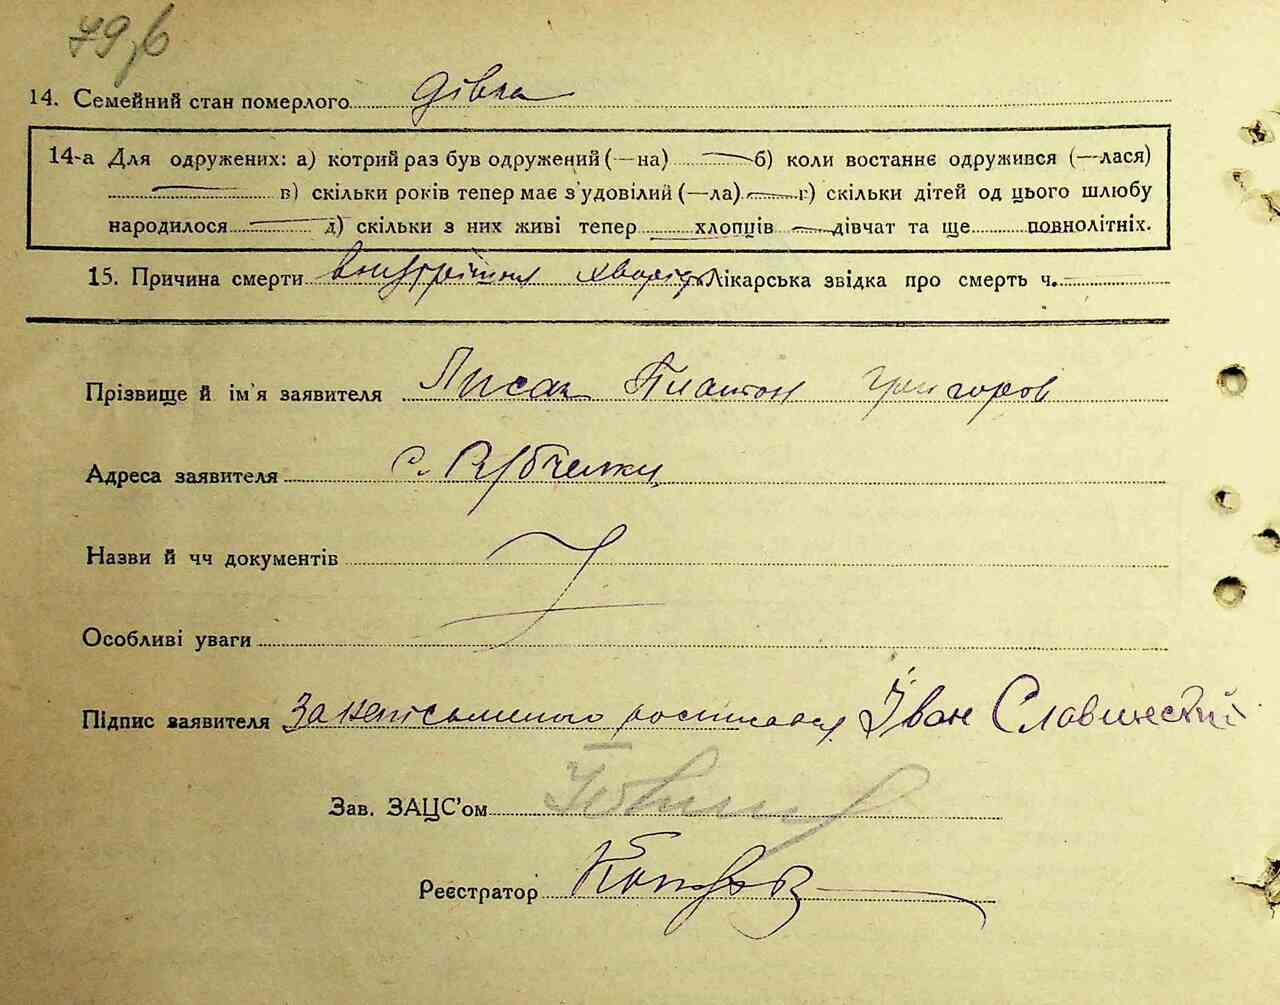 79,6
14. Семейний стан померлого дівка
14-а Для одружених: а) котрий раз був одружений (—на) б) коли востаннє одружився (—лася)
в) скільки років тепер має з'удовілий (—ла) г) скільки дітей од цього шлюбу
народилося д) скільки з них живі тепер хлопців дівчат та ще повнолітніх.
15. Причина смерти внутрішня хвороба Лікарська звідка про смерть ч.
Прізвище й ім'я заявителя Лисак Платон Григоров
Адреса заявителя с.
Назви й чч документів
Особливі уваги
Підпис заявителя За неписьменого росписався Іван Славинский
Зав. ЗАЦС'ом
Реєстратор